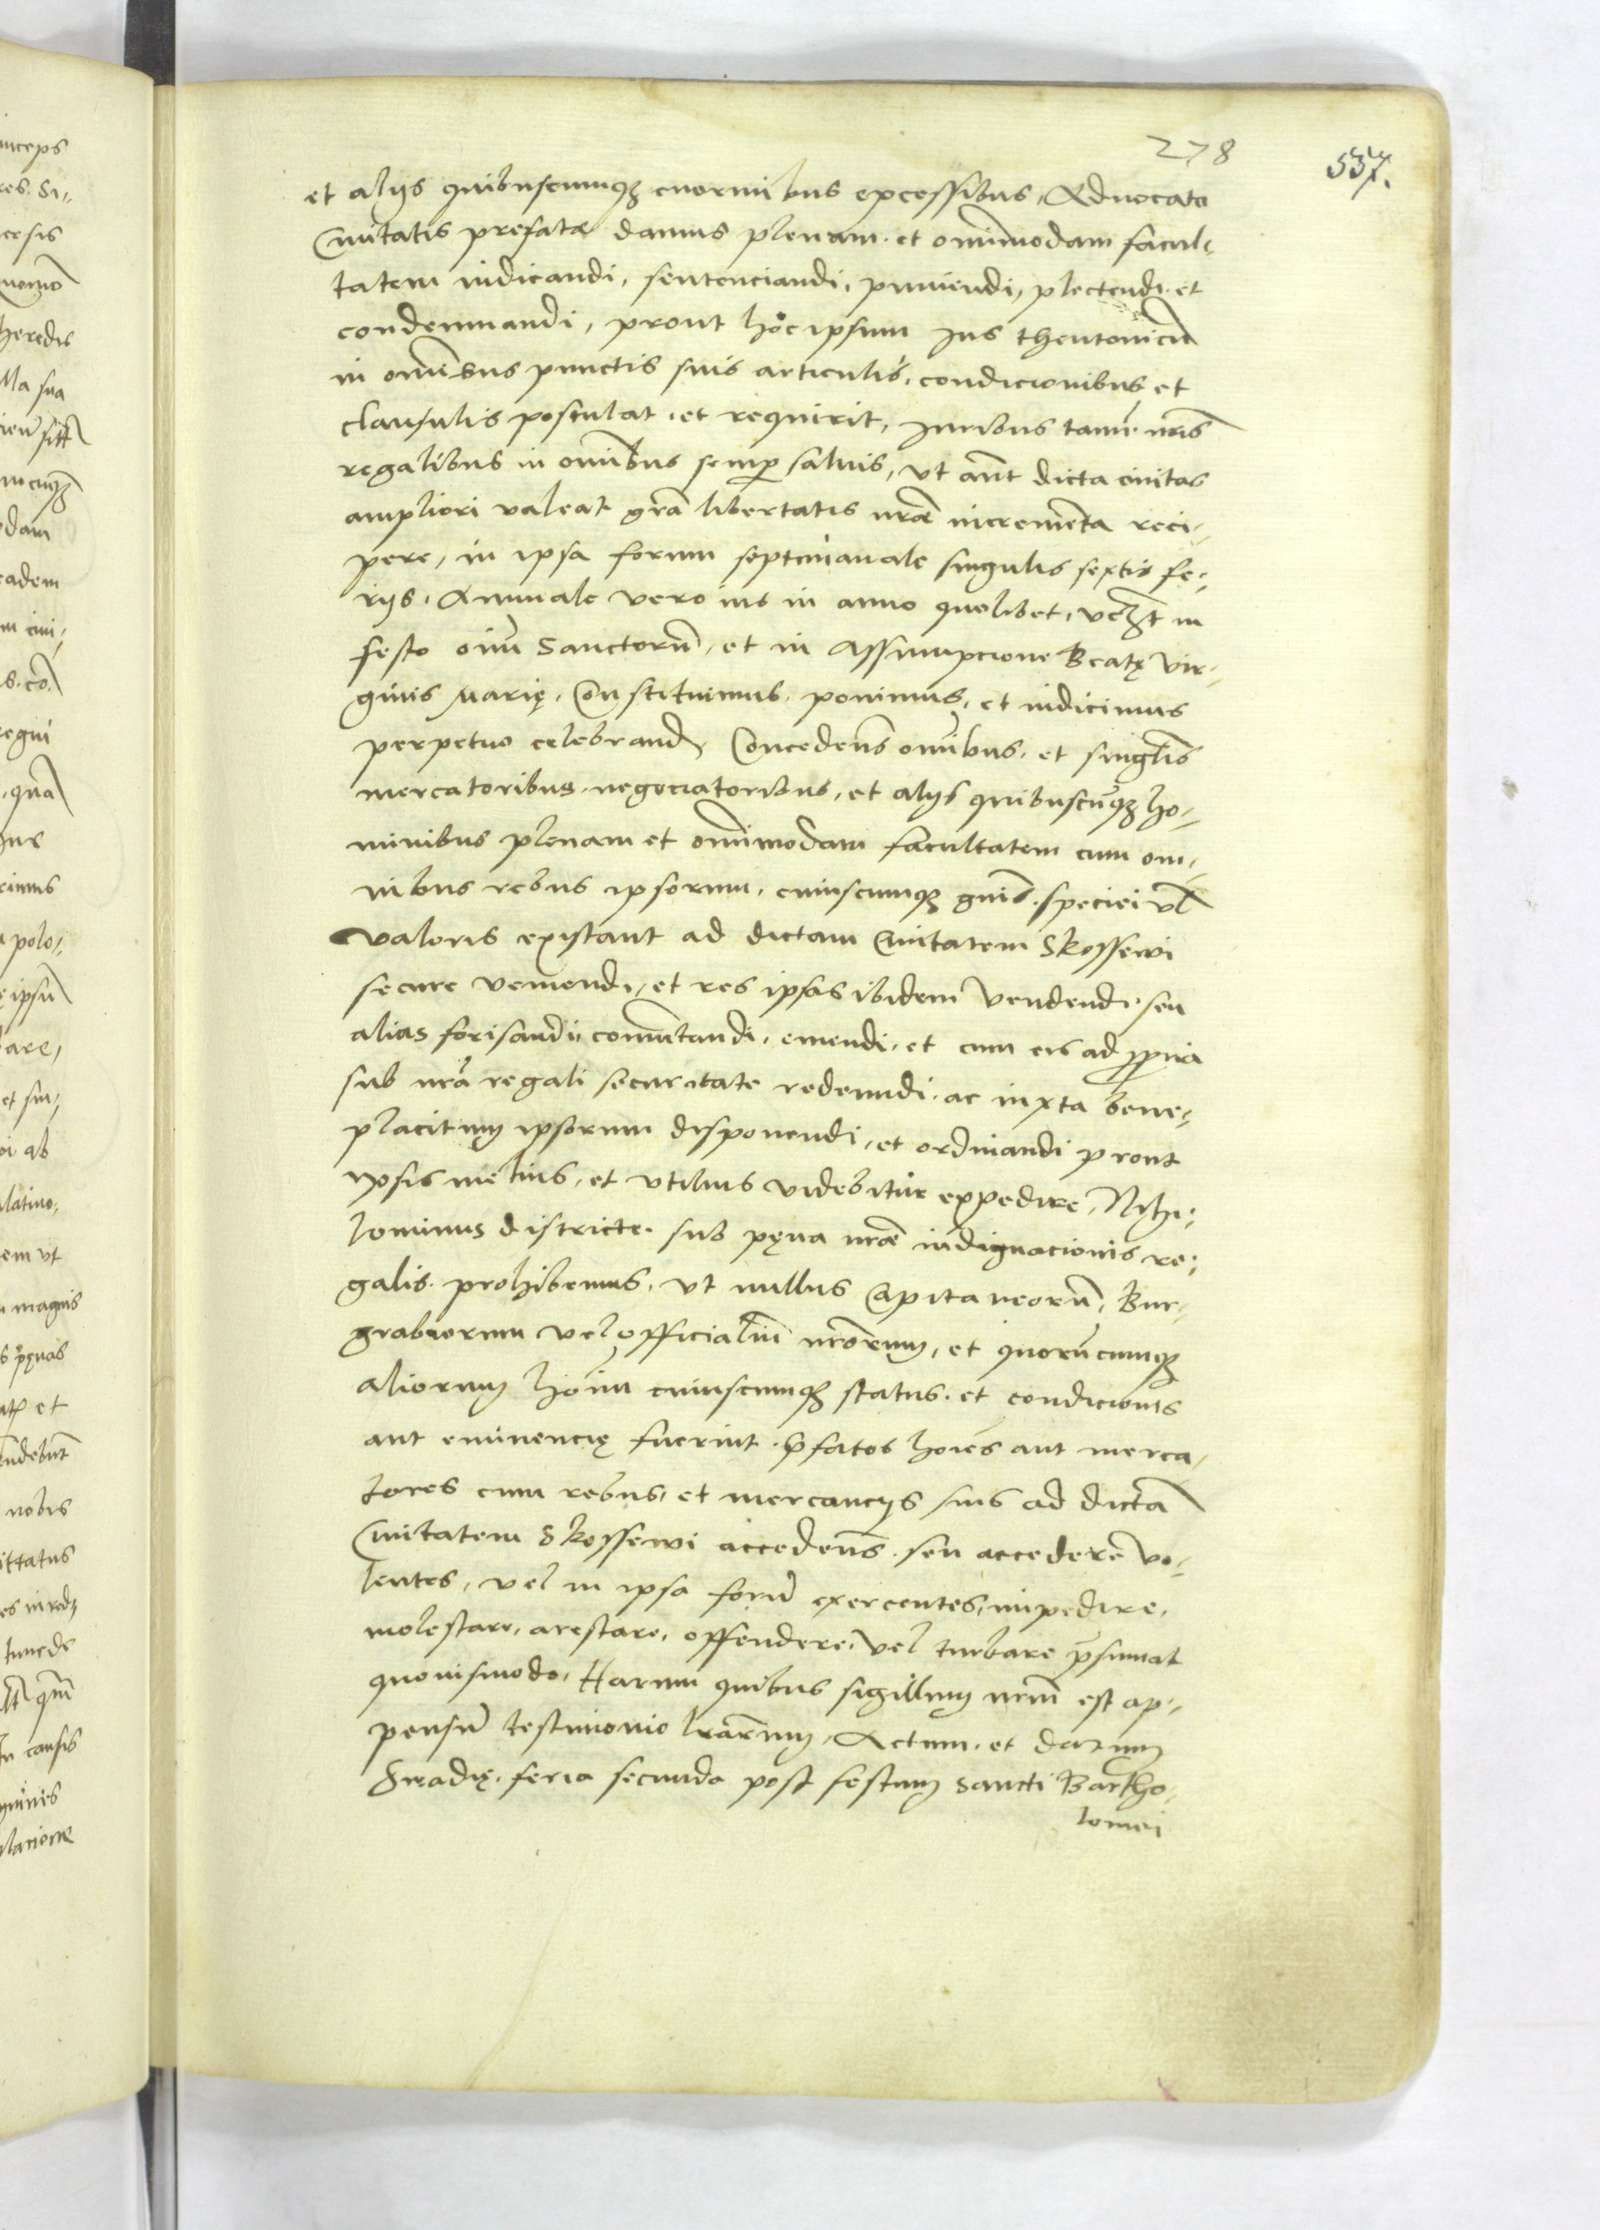 278
557.
et alijs quibuscumqȝ enormibus excessibus, Aduocato
Ciuitatis prefatæ damus plenam et omnimodam facul-
tatem iudicandi, sentenciandi, puniendi, plectendi et
condemnandi, prout hoc ipsum Ius theutonicū
in om̄ibus punctis suis articulis, condicionibus et
clausulis postulat et requirit, Iuribus tamē nr̄is
regalibus in om̄ibus semp saluis, vt aūt dicta ciuitas
ampliori valeat gr̄a libertatis nr̄æ incremēta reci-
pere, in ipsa forum septimanale singulis sextis fe-
rijs. Annuale vero bis in anno quolibet, vcȝt in
festo oīm Sanctorū, et in Assumpcione Beatę Vir-
ginis Marię, Constituimus ponimus, et indicimus
perpetuo celebrand, Concedēns om̄ibus et singlīs
mercatoribus negociatoribus, et alijs quibuscūqȝ ho-
minibus plenam et omnimodam facultatem cum om-
nibus rebus ipsorum, cuiuscumqȝ gn̄is speciei vl
valoris existant ad dictam Ciuitatem Skossewi
secure veniendi, et res ipsas ibidem vendendi seu
alias forisandi com̄utandi, emendi, et cum eis ad ppria
sub nr̄a regali securitate redeundi ac iuxta bene-
placitum ipsorum disponendi, et ordinandi prout
ipsis melius, et vtilius videbitur expedire, Nihi-
lominus districte sub pęna nr̄æ indignacionis re-
galis prohibemus, vt nullus Capitaneorū, Bur-
grabiorum vel officialiū nr̄orum, et quorūcumqȝ
aliorum hoīm cuiuscumqȝ status et condicionis
aut eminencię fuerint p̄fatos hoīes aut merca-
tores cum rebus, et mercancijs suis ad dictā
Ciuitatem Skossewi accedēns seu accedere vo-
lentes, vel in ipsa forū exercentes, impedire,
molestare, arestare, offendere, vel turbare p̄sumat
quouismodo, Harum quibus sigillum nr̄m est ap-
pensū testimonio lr̄arum, Actum et datum
Siradię feria secunda post festum Sancti Bartho-
lomei